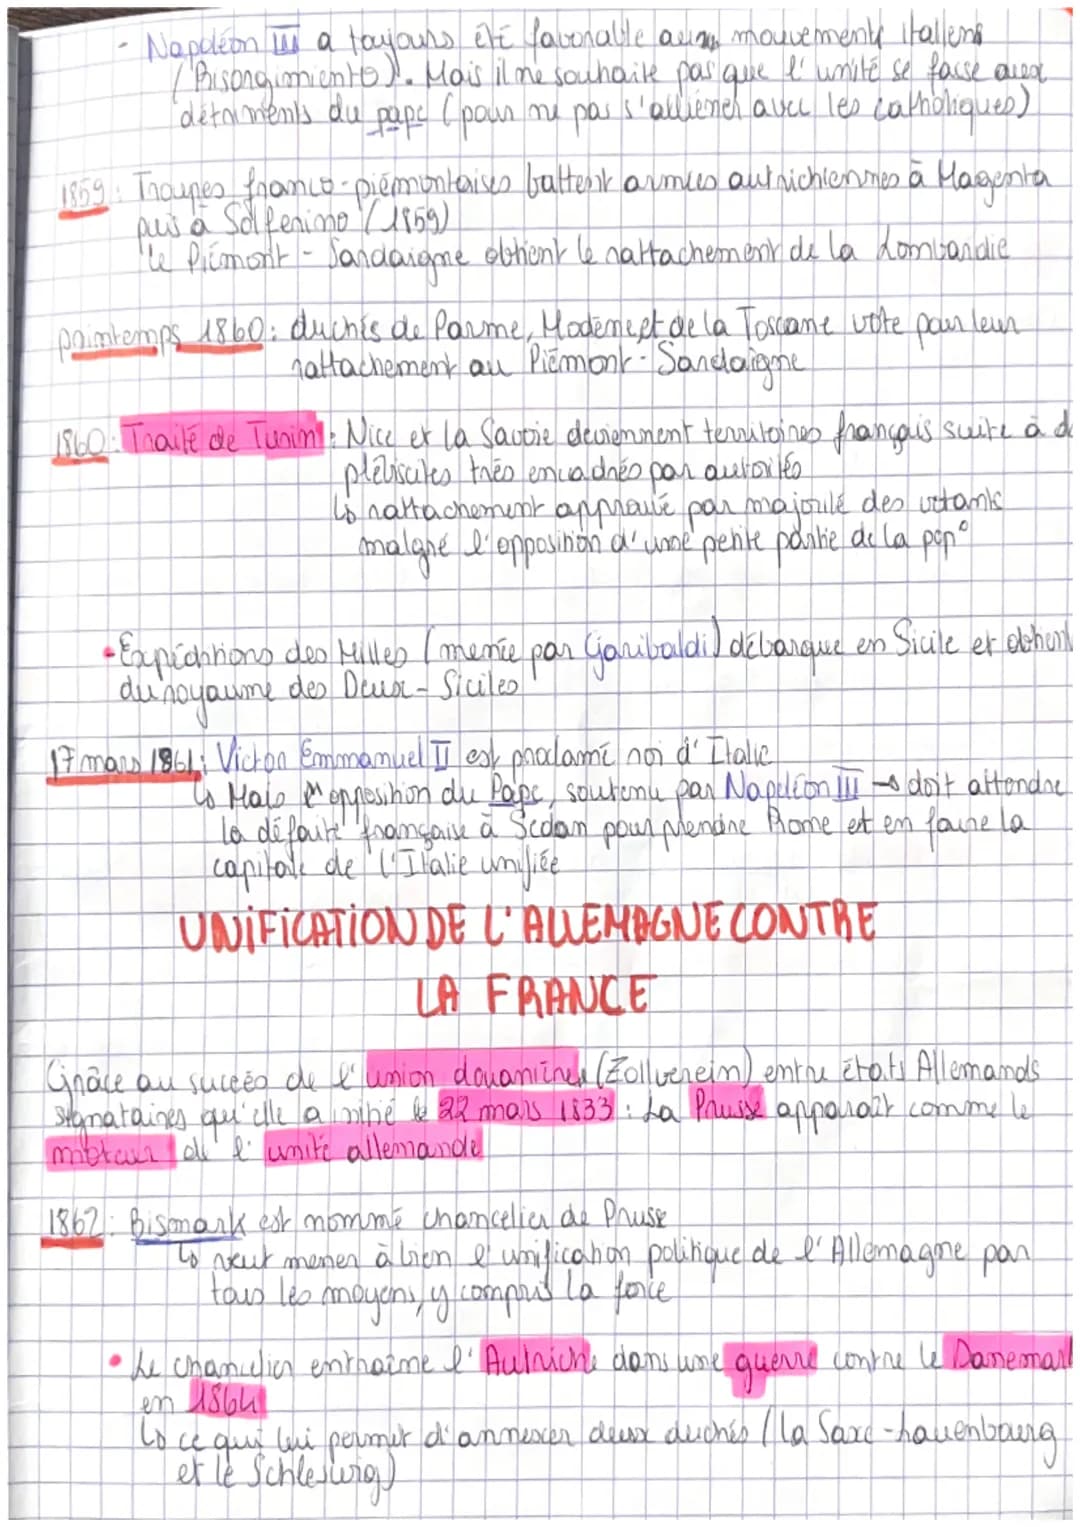 - Napoléon III a toujours été favorable aux mouvements italiens
(Risorgimiento). Mais il ne souhaite pas que l'unité se fasse aux
détriments du pape (pour ne pas s'alliéner avec les catholiques)
1859: Troupes franco-piémontaises battent armées autrichiennes à Magenta
puis à Solferino (1859)
le Piémont-Sardaigne obtient le rattachement de la Lombardie
printemps 1860: duchés de Parme, Modène et de la Toscane vote pour leur
rattachement au Piémont-Sardaigne
1860: Traité de Turin: Nice et la Savoie deviennent territoires français suite à d
plébiscites très encadrés par autorités
↳ rattachement approuvé par majorité des votants
malgré l'opposition d'une petite partie de la pop°
• Expéditions des Milles (menée par Garibaldi) débarque en Sicile et obtient
du royaume des Deux-Siciles
17 mars 1861: Victor Emmanuel II est proclamé roi d'Italie
↳ Mais opposition du Pape, soutenu par Napoléon III → doit attendre
la défaite française à Sedan pour prendre Rome et en faire la
capitale de l'Italie unifiée
UNIFICATION DE L'ALLEMAGNE CONTRE
LA FRANCE
Grâce au succès de l'union douanières (Zollverein) entre états Allemands
signataires qu'elle a initié le 22 mars 1833: La Prusse apparaît comme le
moteur de l'unité allemande
1862: Bismark est nommé chancelier de Prusse
↳ veut mener à bien l'unification politique de l'Allemagne par
tous les moyens, y compris la force
• Le chancelier entraîne l'Autriche dans une guerre contre le Danemark
en 1864
↳ ce qui lui permet d'annexer deux duchés (la Saxe-Lauenbourg
et le Schleswig)